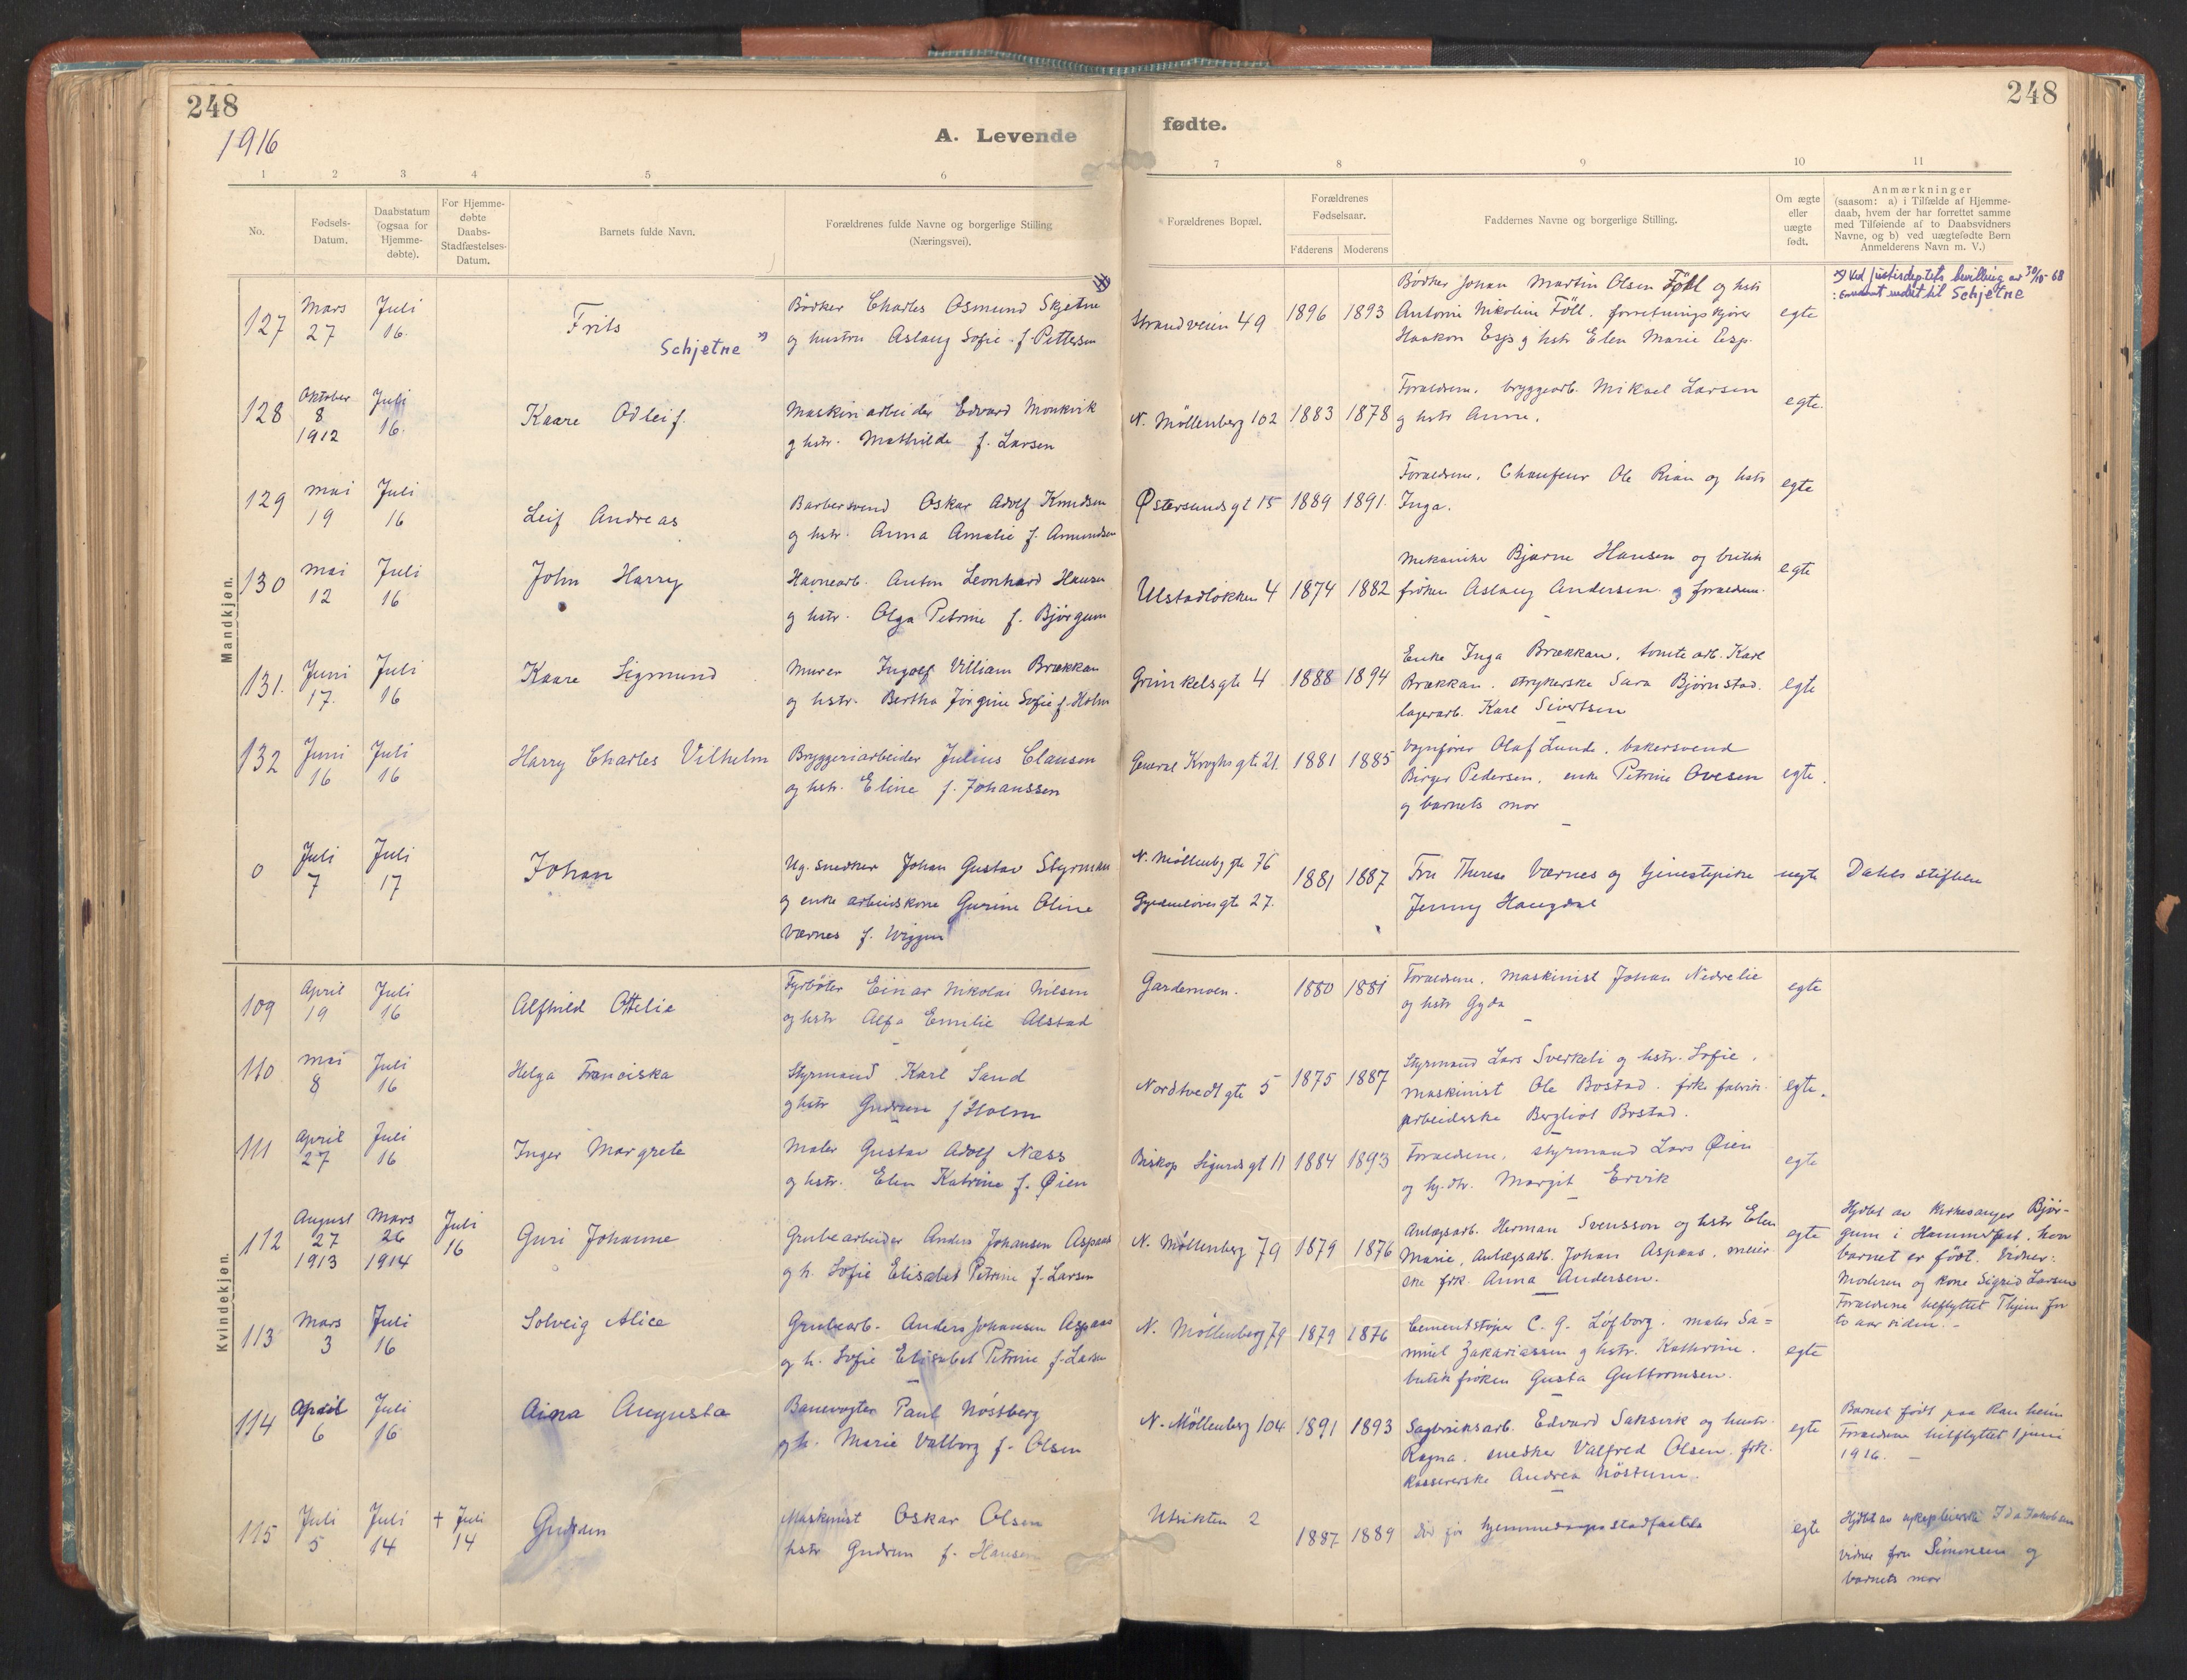 248
1916
A. Levende
fødte.
248
1 2 3 4 5 6 7 8 9 10 11
No.
Fødsels-
Datum.
Daabstatum
(ogsaa for
Hjemme-
døbte).
For Hjemme-
døbte
Daabs-
Stadfæstelses-
Datum.
Barnets fulde Navn.
Forældrenes fulde Navne og borgerlige Stilling
(Næringsvei).
Forældrenes Bopæl.
Forældrenes
Fødselsaar.
Faderens Moderens
Faddernes Navne og borgerlige Stilling.
Om ægte
eller
uægte
født.
Anmærkninger
(saasom: a) i Tilfælde af Hjemme-
daab, hvem der har forrettet samme
med Tilføiende af to Daabsvidners
Navne, og b) ved uægtefødte Børn
Anmelderens Navn m. V.)
Mandkjøn.
127
Mars
27
Juli
16.
Frits
Schjetne x)
Bödker Charles Osmund Skjetne
og hustru Aslaug Sofie f. Pettersen
Strandveien 49
1896 1893
Bödker Johan Martin Olsen Föll og hstr
Antonie Nikoline Föll. forretningskjörer
Haakon Esp og hstr Elen Marie Esp.
egte
x) Ved Justisdeptets bevilling av 30/10-68
endret til Schjetne
128
Oktober
8
1912
Juli
16.
Kaare Odleif.
Maskinarbeider Edvard Monkvik
g hstr. Mathilde f. Larsen
N. Möllenberg 102
1883 1878
Foraeldrene, bryggearb. Mikael Larsen
g hstr Anne.
egte.
129
Mai
19
Juli
16
Leif Andreas
Barbersvend Oskar Adolf Knudsen
og hstr. Anna Amalie f. Amundsen
Østersundsgt 15
1889 1891.
Foraeldrene. Chaufeur Ole Rian og hstr
Inga.
egte
130
Mai
12
Juli
16
John Harry
Havnearb. Anton Leonhard Hansen
g hstr. Olga Petrine f. Bjørgum
Ulstadløkken 4
1874 1882
Mekaniker Bjarne Hansen og butik
frøken Aslaug Andersen og foraeldrene.
egte
131.
Juni
17.
Juli
16
Kaare Sigmund
Murer Ingolf Villiam Brækkan
og hstr. Bertha Jørgine Sofie f. Holm
Grinkelsgte 4
1888 1894
Enke Inga Brækkan, tomtearb. Karl
Brækkan. strykerske Sara Bjørnstad.
lagerarb. Karl Sivertsen
egte
132
Juni
16
Juli
16
Harry Charles Vilhelm
Bryggeriarbeider Julius Clausen
og hstr. Eline f. Johanssen
General Kroghs gte 21.
1881 1885
Vognfører Olaf Lunde, bakersvend
Birger Pedersen, enke Petrine Ovesen
og barnets mor
egte.
0
Juli
7
Juli
17
Johan
Ug. snedker Johan Gustav Styrman
og enke arbeidskone Gurine Oline
Værnes f. Wiggen
N. Möllenbg gte 76
Gyldenløves gte 27.
1881 1887
Fru Therese Værnes og tjenestepike
Jenny Haugdal
uegte
Dahls stiftelse
Kvindekjøn.
109
April
19
Juli
16
Alfhild Ottelie
Fyrbøter Einar Nikolai Nilsen
og hstr Alfa Emilie Alstad
Gardemoen.
1880 1881
Foraeldrene, maskinist Johan Nedrelie
og hstr Gyda
egte
110
Mai
8
Juli
16
Helga Franciska
Styrmand Karl Sand
g hstr Gudrun f Holm
Nordtvedt gte 5
1875 1887
Styrmand Lars Sverkeli og hstr. Sofie.
maskinist Ole Bostad. frk. fabrik-
arbeiderske Bergliot Bostad.
egte.
111
April
27
Juli
16
Inger Margrete
Maler Gustav Adolf Næss
og hstr. Elen Katrine f. Øien
Biskop Sigurds gt 11
1884 1893
Foraeldrene, styrmand Lars Øien
og hj. dtr. Margit Ervik
egte
112
August
27
1913
Mars
26
1914
Juli
16
Guri Johanne
Grubearbeider Anders Johansen Aspaas
g h. Sofie Elisabet Petrine f. Larsen
N. Møllenberg 79
1879 1876
Anlægsarb. Herman Svensson og hstr Elen
Marie, Anlægsarb. Johan Aspaas, meier-
ske frk. Anna Andersen.
egte
Hjdbt av Kirkesanger Bjør-
gum i Hammerfest, hvor
barnet er født. Vidner:
Moderen og kone Sigrid Larsen
Foraeldrene tilflyttet Thjem for
to aar siden. -
113
Mars
3
Juli
16
Solveig Alice
Grubearb. Anders Johansen Aspaas
og h. Sofie Elisabet Petrine f. Larsen
N. Møllenberg 79
1879 1876
Cementstøper C. G. Løfborg. maler Sa=
muel Zakariassen g hstr. Kathrine.
butik frøken Gusta Guttormsen.
egte
114
April
6
Juli
16
Aina Augusta
Banevogter Paul Nøstberg
g h. Marie Valborg f. Olsen
N. Möllenberg 104
1891 1893
Sagbruksarb. Edvard Saksvik og hustr.
Ragna. snedker Valfred Olsen. frk.
kassererske Andrea Nöstum.
egte
Barnet født paa Ranheim
Foraeldrene tilflyttet 1 juni
1916. -
115
Juli
5
Juli
14
+ Juli
14
Gudrun
Maskinist Oskar Olsen
hstr Gudrun f. Hansen
Utsikten 2
1887 1889
Død før hjemmedaaps stadfæstels
egte
Hjdbt av sykepleierske Ida Jakobsen
Vidner fru Simonsen og
barnets mor